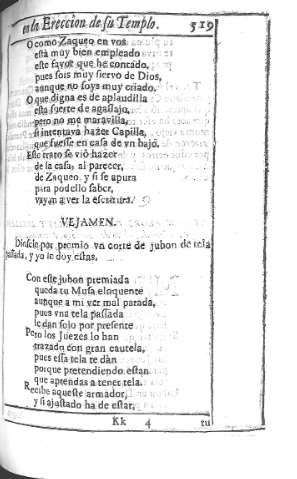 en la Ereccion de su Templo. 519
O como Zaqueo en vos
està muy bien empleado
este favor que he contado,
pues sois muy siervo de Dios,
aunque no soys muy criado.
O que digna es de aplaudilla
esta suerte de agasajo,
pero no me maravilla,
si intentava hazer Capilla,
que fuesse en casa de vn baxo.
Este trato se viò hazer
de la casa, al parecer,
de Zaqueo, y si se apura
para podello saber,
vayan a ver la escritura.
VEJAMEN.
Dieſele por premio vn corte de jubon de tela
passada, y yo le doy estas.
Con este jubon premiada
queda tu Musa eloquente
aunque a mi ver mal parada,
pues vna tela passada
le dan solo por presente
Pero los Juezes lo han
trazado con gran cautela,
pues essa tela te dàn
porque pretendiendo estan
que aprendas a tener tela.
Recibe aqueste armador,
y si ajustado ha de estar,
Kk 4 tu